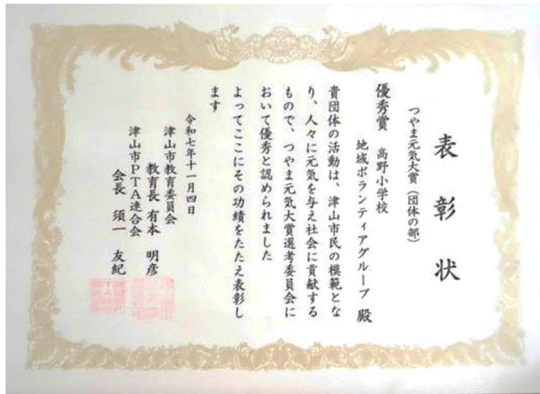 表彰状
つやま元気大賞（団体の部）
優秀賞　高野小学校
地域ボランティアグループ 殿
貴団体の活動は、津山市民の模範とな
り、人々に元気を与え社会に貢献する
もので、つやま元気大賞選考委員会に
おいて優秀と認められました
よってここにその功績をたたえ表彰し
ます
令和七年十一月四日
津山市教育委員会
教育長 有本 明彦
津山市ＰＴＡ連合会
会長 須一 友紀